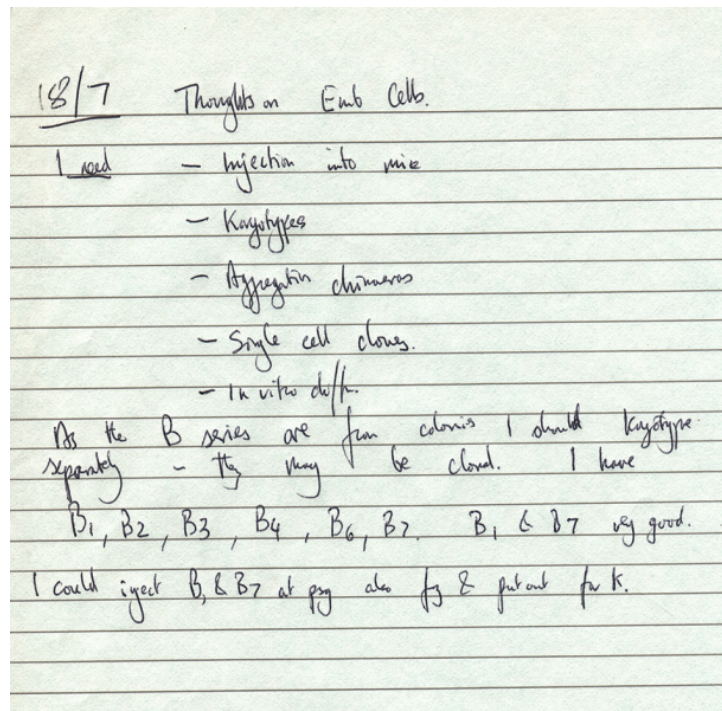 18/7 Thoughts on Emb Cells.
I need - Injection into mice
- Karyotypes
- Aggregation chimaeras
- Single cell clones.
- In vitro diff.
As the B series are from colonies I should karyotype
separately - they may be clonal. I have
B1, B2, B3, B4, B6, B7. B1 & B7 very good.
I could inject B1 & B7 at psg also & put out for K.